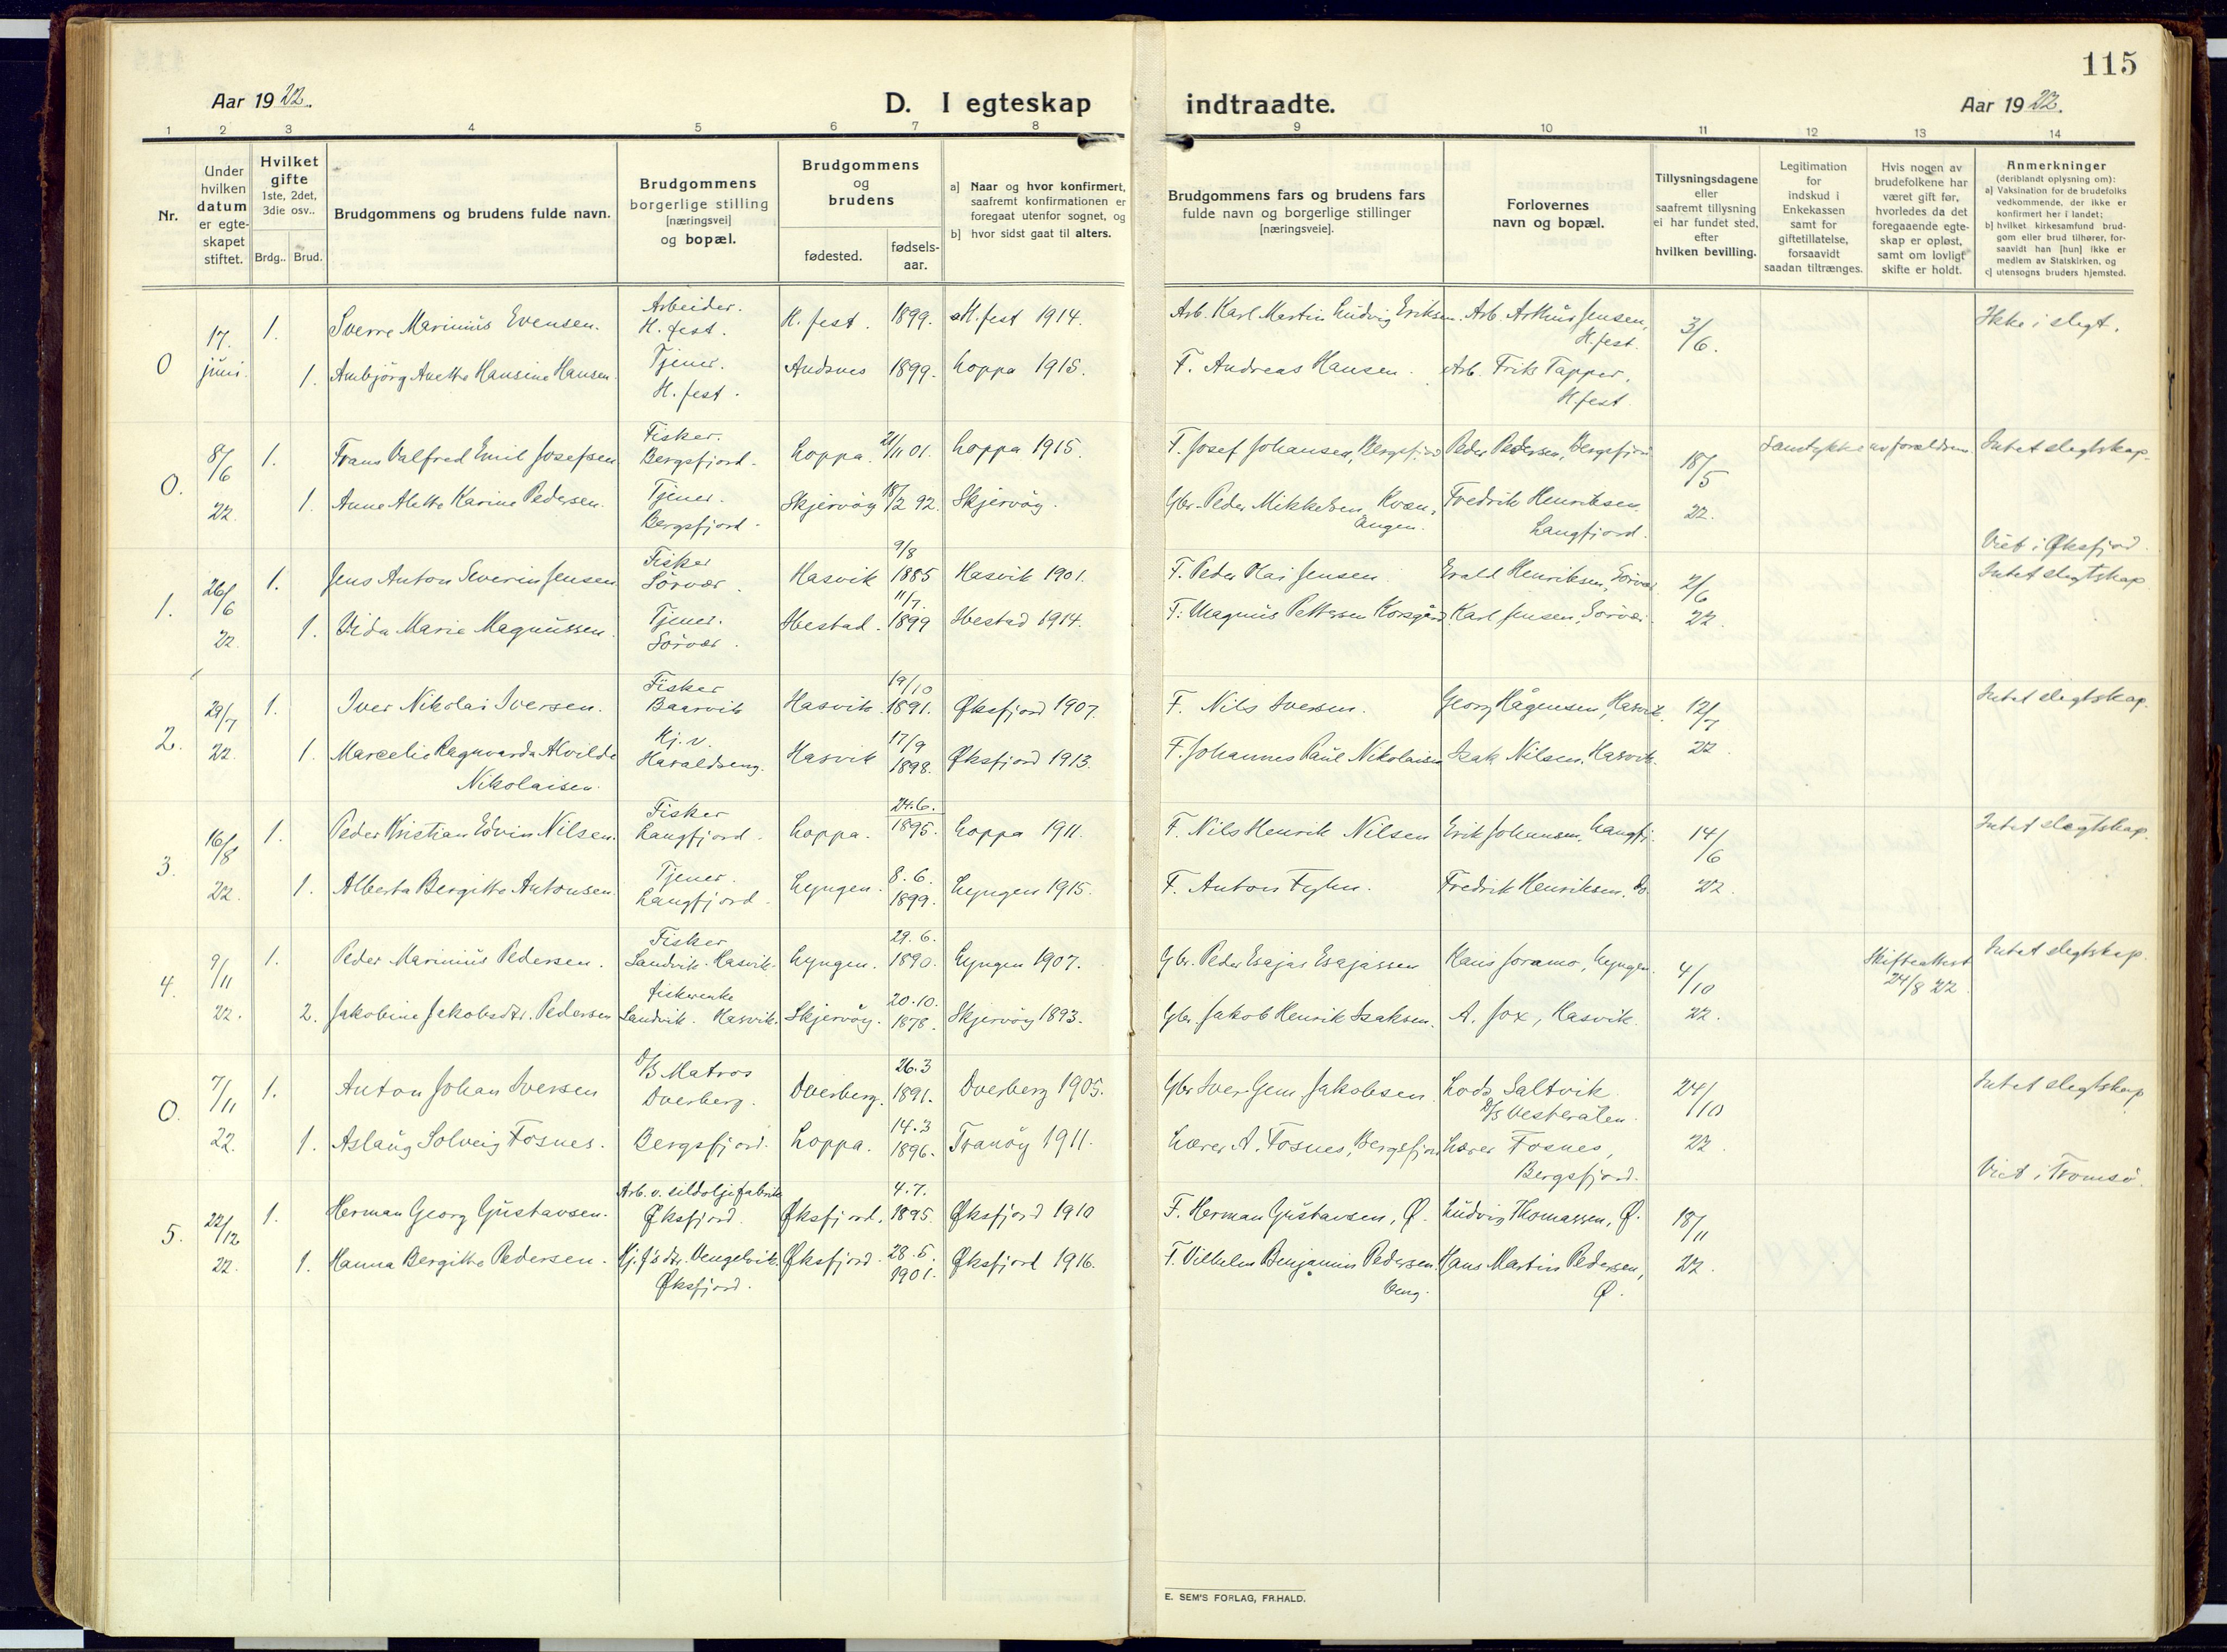 115
Aar 1922.
D. I egteskap indtraadte.
Aar 1922.
1 2 3 4 5 6 7 8 9 10 11 12 13 14
Nr.
Under hvilken datum er egte-skapet stiftet.
Hvilket gifte 1ste, 2det, 3die osv..
Brdg.. Brud.
Brudgommens og brudens fulde navn.
Brudgommens borgerlige stilling [næringsvei] og bopæl.
Brudgommens og brudens
fødested.
fødsels-aar.
a] Naar og hvor konfirmert, saafremt konfirmationen er foregaat utenfor sognet, og
b] hvor sidst gaat til alters.
Brudgommens fars og brudens fars fulde navn og borgerlige stillinger [næringsveie].
Forlovernes navn og bopæl.
Tillysningsdagene eller saafremt tillysning ei har fundet sted, efter hvilken bevilling.
Legitimation for indskud i Enkekassen samt for giftetillatelse, forsaavidt saadan tiltrænges.
Hvis nogen av brudefolkene har været gift før, hvorledes da det foregaaende egte-skap er opløst, samt om lovligt skifte er holdt.
Anmerkninger (deriblandt oplysning om):
a) Vaksination for de brudefolks vedkommende, der ikke er konfirmert her i landet;
b) hvilket kirkesamfund brud-gom eller brud tilhører, for-saavidt han [hun] ikke er medlem av Statskirken, og
c) utensogns bruders hjemsted.
0 17. juni. 1. Sverre Marinius Evensen. Arbeider. H. fest. H. fest. 1899. H. fest 1914. Arb. Karl Martin Ludvig Eriksen. Arb. Arthur Jensen, H. fest. 3/6. Ikke i slegt.
1. Anbjørg Anette Hansine Hansen. Tjener. H. fest. Andsnes 1899. Loppa 1915. F. Andreas Hansen. Arb. Frits Tapper, H. fest.
0. 8/6 22. 1. Frans Valfred Emil Josefsen Fisker. Bergsfjord. Loppa. 21/11 01. Loppa 1915. F. Josef Johansen, Bergsfjord Peder Pedersen, Bergsfjord 18/5 22. Samtykke av forældrene. Intet slegtskap.
1. Anne Alette Karine Pedersen. Tjener. Bergsfjord. Skjervøy 18/2 92. Skjervøy. Gbr. Peder Mikkelsen Kvænangen. Fredrik Henriksen Langfjord. Viet i Øksfjord.
1. 26/6 22. 1. Jens Anton Severin Jensen Fisker Sørvær. Hasvik 9/8 1885 Hasvik 1901. F. Peder Olai Jensen. Evald Henriksen, Sørvær. 2/6 22. Intet slegtskap
1. Vida Marie Magnussen. Tjener. Sørvær. Ibestad. 11/7. 1899 Ibestad 1914. F. Magnus Pettersen Korsgård Karl Jensen, Sørvær.
2. 29/7 22. 1. Iver Nikolai Iversen. Fisker Baarvik Hasvik. 19/10 1891. Øksfjord 1907. F. Nils Iversen. Georg Hågensen, Hasvik. 12/7 22 Intet slegtskap.
1. Marcelie Ragnvarda Alvilde Nikolaisen. Kj. v. Haraldseng. Hasvik 17/9 1898. Øksfjord 1913. F. Johannes Paul Nikolaisen Isak Nilsen, Hasvik.
3. 16/8 22. 1. Peder Kristian Edvin Nilsen. Fisker Langfjord. Loppa. 24.6. 1895. Loppa 1911. F. Nils Henrik Nilsen Erik Johansen, Langfj. 14/6 22. Intet slegtskap.
1. Alberta Bergitte Antonsen. Tjener. Langfjord. Lyngen. 8.6. 1899. Lyngen 1915. F. Anton Fyhn. Fredrik Henriksen, do
4. 9/11 22. 1. Peder Marinius Pedersen. Fisker Sandvik. Hasvik. Lyngen. 29.6. 1890. Lyngen 1907. Gbr. Peder Esajas Esajassen Hans Joramo, Lyngen. 4/10 22. Skifteattest 24/8 22. Intet slegtskap.
2. Jakobine Jakobsdtr. Pedersen fiskerenke Sandvik. Hasvik. Skjervøy. 20.10. 1878. Skjervøy 1893. Gbr. Jakob Henrik Isaksen. A. Fox, Hasvik.
0. 7/11 22. 1. Anton Johan Iversen D/S Matros Dverberg. Dverberg. 26.3 1891. Dverberg 1905. Gbr Iver Gem Jakobsen Lods Saltvik D/S Vesteralen. 24/10 22. Intet slegtskap
1. Aslaug Solveig Fosnes. Bergsfjord. Loppa. 14.3 1896. Tranøy 1911. Lærer A. Fosnes, Bergsfjord Lærer Fosnes, Bergsfjord. Viet i Tromsø.
5. 22/12 22. 1. Herman Georg Gustavsen. Arb. v. sildoljefabrik Øksfjord. Øksfjord. 4.7. 1895 Øksfjord 1910 F. Herman Gustavsen, Ø. Ludvig Thomassen, Ø. 18/11 22.
1. Hanna Bergitte Pedersen. Kj. f's dtr. Vengelvik. Øksfjord. Øksfjord. 28.5. 1901. Øksfjord 1916. F. Vilhelm Benjamin Pedersen Veng. Hans Martin Pedersen, Ø.
E. SEM'S FORLAG, FR.HALD.